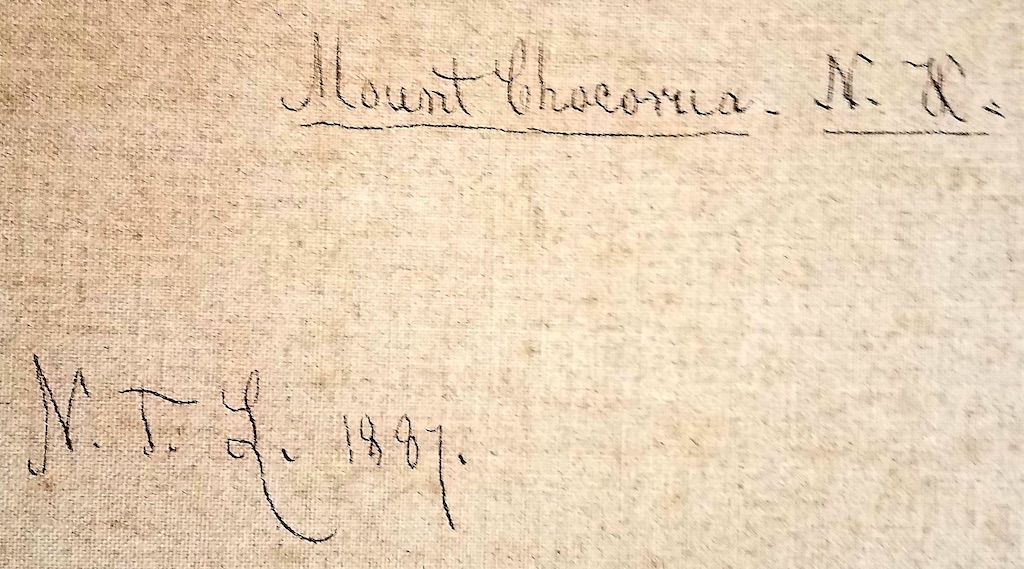 Mount Chocorua. N. H.
N. T. L. 1887.